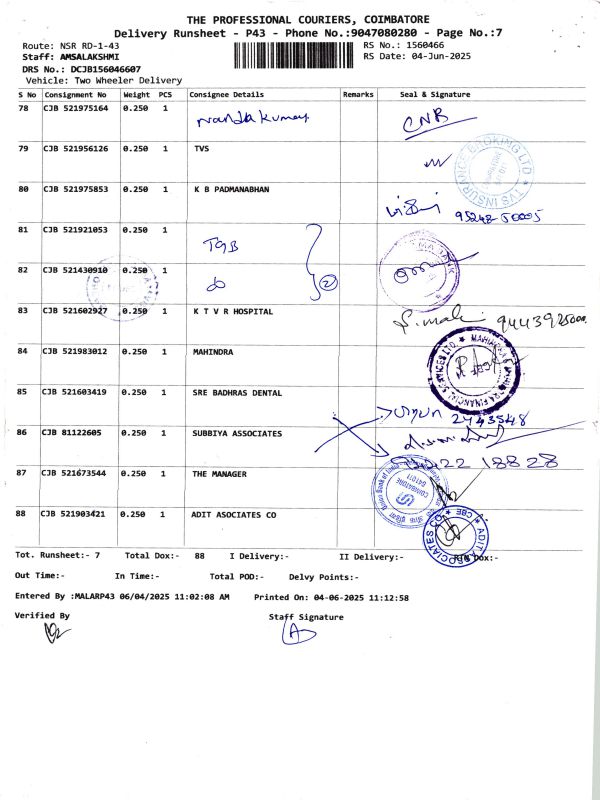 THE PROFESSIONAL COURIERS, COIMBATORE
Delivery Runsheet - P43 - Phone No.:9047080280 - Page No.:7
Route: NSR RD-1-43 RS No.: 1560466
Staff: AMSALAKSHMI RS Date: 04-Jun-2025
DRS No.: DCJB156046607
Vehicle: Two Wheeler Delivery
S No Consignment No Weight PCS Consignee Details Remarks Seal & Signature
78 CJB 521975164 0.250 1 Nandakumar CNB
79 CJB 521956126 0.250 1 TVS
TVS INSURANCE BROKING LTD
80 CJB 521975853 0.250 1 K B PADMANABHAN
81 CJB 521921053 0.250 1 TGB
82 CJB 521430910 0.250 1 do 2
83 CJB 521602927 0.250 1 K T V R HOSPITAL
84 CJB 521983012 0.250 1 MAHINDRA
85 CJB 521603419 0.250 1 SRE BADHRAS DENTAL
2443548
86 CJB 81122605 0.250 1 SUBBIYA ASSOCIATES
87 CJB 521673544 0.250 1 THE MANAGER
Union Bank of India COIMBATORE
88 CJB 521903421 0.250 1 ADIT ASOCIATES CO
ADIT ASSOCIATES CO CBE
Tot. Runsheet:- 7 Total Dox:- 88 I Delivery:- II Delivery:- Dox:-
Out Time:- In Time:- Total POD:- Delvy Points:-
Entered By :MALARP43 06/04/2025 11:02:08 AM Printed On: 04-06-2025 11:12:58
Verified By Staff Signature